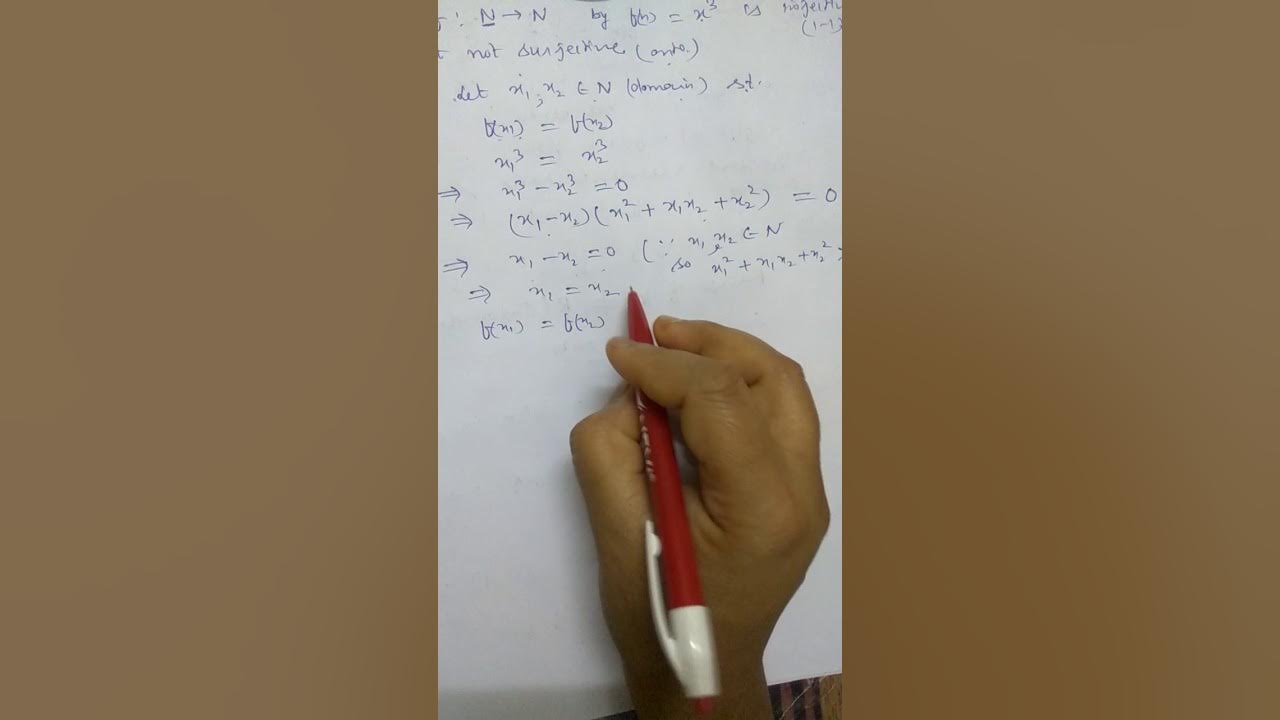 : N → N by f(x) = x³ is injective (1-1)
not surjective (onto.)
Let x₁, x₂ ∈ N (domain) s.t.
f(x₁) = f(x₂)
x₁³ = x₂³
⇒ x₁³ - x₂³ = 0
⇒ (x₁ - x₂)(x₁² + x₁x₂ + x₂²) = 0
⇒ x₁ - x₂ = 0 (∵ x₁, x₂ ∈ N
so x₁² + x₁x₂ + x₂²
⇒ x₁ = x₂
f(x₁) = f(x₂)